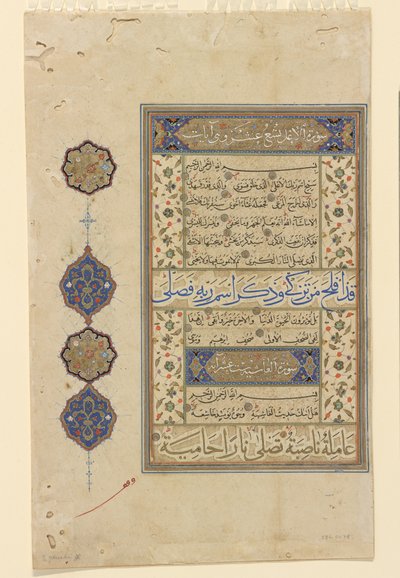 سورة الاعلى تسع عشر وهي آيات
بسم الله الرحمن الرحيم
سبح اسم ربك الاعلى الذي خلق فسوى والذي قدر فهدى
والذي اخرج المرعى فجعله غثاء احوى سنقرئك فلا تنسى
الا ما شاء الله انه يعلم الجهر وما يخفى ونيسرك لليسرى
فذكر ان نفعت الذكرى سيذكر من يخشى ويتجنبها الاشقى
الذي يصلى النار الكبرى ثم لا يموت فيها ولا يحيى
قد افلح من تزكى وذكر اسم ربه فصلى
بل تؤثرون الحيوة الدنيا والاخرة خير وابقى ان هذا
لفي الصحف الاولى صحف ابرهيم وموسى
سورة الغاشية
بسم الله الرحمن الرحيم
هل اتيك حديث الغاشية وجوه يومئذ خاشعة
عاملة ناصبة تصلى نارا حامية